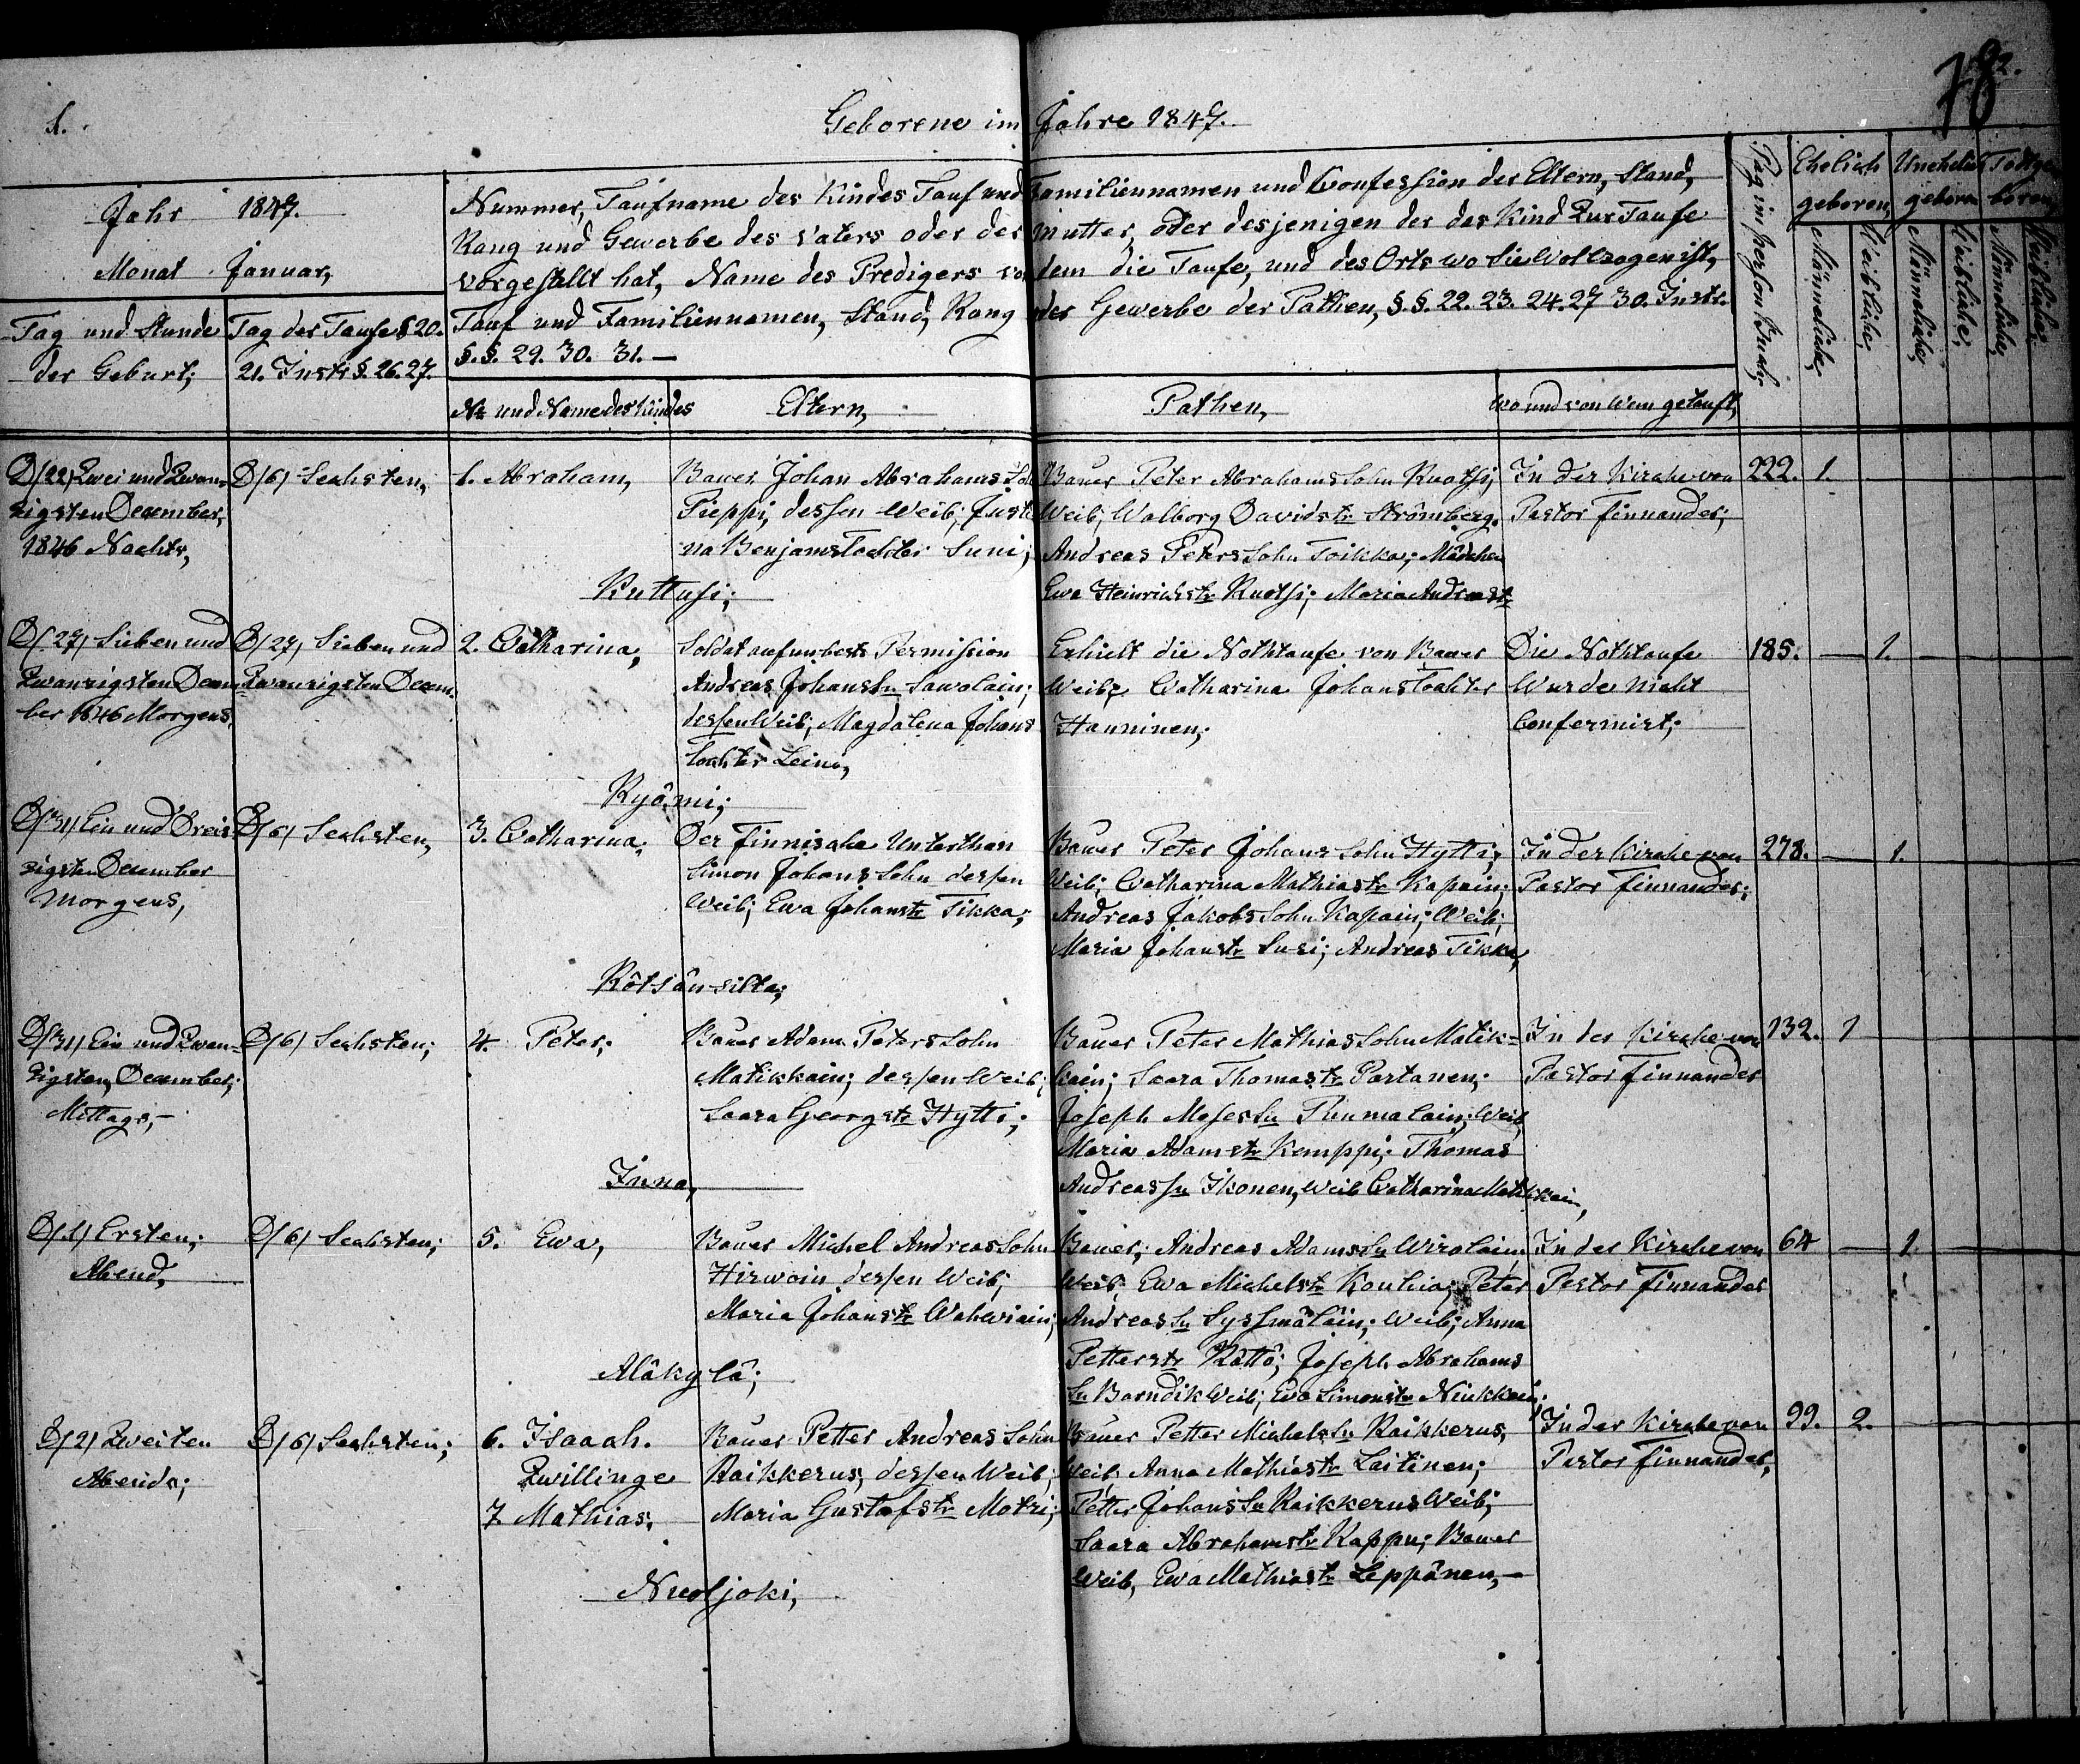 1.
Geborene im Jahre 1847.
78
Jahr 1847.
Monat Januar,
Tag und Stunde
der Geburt;
Tag der Taufe § 20.
21. Instr §. 26. 27.
Nummer, Taufname des Kindes Tauf und Familiennamen und Confession der Eltern, Stand,
Rang und Gewerbe des Vaters oder der Mutter, oder desjenigen der das Kind Zur Taufe
vorgestellt hat, Name des Predigers von dem die Taufe, und des Orts wo sie Vollzogen ist,
Tauf und Familiennamen, Stand, Rang oder Gewerbe der Pathen, §.§. 22. 23. 24. 27 30. Instr.
§.§. 29. 30. 31.—
Nr und Name des Kindes
Eltern,
Pathen,
Wo und von Wem getauft,
Pag im Personalbuch
Ehelich
geboren,
Unehelich
geboren
Todtge
boren,
Männliche,
Weibliche,
Männliche,
Weibliche,
Männliche,
Weibliche
D/22/ Zwei und Zwan-
zigsten December,
1846 Nachts,
D/6/ Sechsten,
1. Abraham,
Bauer Johan Abrahams Soh
Pieppi, dessen Weib; Justi
na Benjams Tochter Suni;
Kuttusi;
Bauer Peter Abrahams Sohn Ruotsi;
Weib; Walborg Davidstr Strömberg.
Andreas Peters Sohn Toikka; Mädchen
Ewa Heinrichstr Ruotsi; Maria Andreastr
In der Kirche von
Pastor Finnander;
222. 1.
D/27/ Sieben und
Zwanzigsten Decem-
ber 1846 Morgens,
D/27/ Sieben und
Zwanzigsten Decem.
2. Catharina,
Soldat auf unbest Permission
Andreas Johans Sn Sawolain;
dessen Weib, Magdalena Johans
Tochter Leino,
Ryömi;
Erhielt die Nothtaufe von Bauer
Weibe Catharina Johans Tochter
Hanninen;
Die Nothtaufe
Wurde nicht
Confermirt;
185. — 1.
D/31/ Ein und Dreis
zigsten December
Morgens,
D/6/ Sechsten,
3. Catharina;
Der Finnische Unterthan
Simon Johans Sohn dessen
Weib; Ewa Johanstr Tikka;
Rötsänsilta;
Bauer Peter Johans Sohn Hytti;
Weib; Catharina Mathiastr Kapain;
Andreas Jakobs Sohn Kapain; Weib;
Maria Johanstr Susi; Andreas Tikka,
In der Kirche von
Pastor Finnander;
278. — 1.
D/31/ Ein und Zwan-
zigsten, December;
Mittags,—
D/6/ Sechsten;
4. Peter;
Bauer Adam Peters Sohn
Matikkain; dessen Weib;
Saara Georgstr Hytti;
Inna,
Bauer Peter Mathias Sohn Matik-
kain; Saara Thomastr Partanen;
Joseph Moses Sn Pinmalain; Weib
Maria Adamstr Kemppi; Thomas
Andreas Sn Ikonen, Weib Catharina Matikkain,
In der Kirche von
Pastor Finnander
132. 1
D/1/ Ersten;
Abend,
D/6/ Sechsten;
5. Ewa,
Bauer Michel Andreas Sohn
Hirwoin dessen Weib;
Maria Johanstr Wahwiain;
Aläkylä;
Bauer; Andreas Adams Sn Wirolain
Weib; Ewa Michelstr Kouhia; Peter
Andreas Sn Syssmäläin; Weib; Anna
Petterstr Rättö; Joseph Abrahams
Sn Borndik Weib; Ewa Simonstr Niukkain;
In der Kirche von
Pastor Finnander
64 — 1.
D/2/ Zweiten
Abends;
D/6/ Sechsten;
6. Isaach.
Zwillinge
7. Mathias,
Bauer Petter Andreas Sohn
Raikkerus, dessen Weib;
Maria Gustafstr Motzi;
Nuoljoki,
Bauer Petter Michels Sn Raikkerus,
Weib; Anna Mathiastr Laitinen;
Petter Johans Sn Raikkerus Weib;
Saara Abrahamstr Kappu; Bauer
Weib, Ewa Mathiastr Leppänen,—
In der Kirche von
Pastor Finnander,
99. 2.